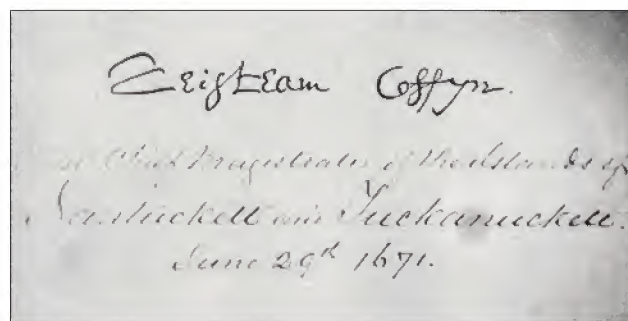 Tristram Coffyn.
Chief Magistrate of the Islands of
Nantuckett and Tuckanuckett.
June 29th 1671.